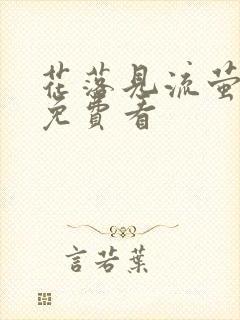 花落見流萤
免費看
言若葉